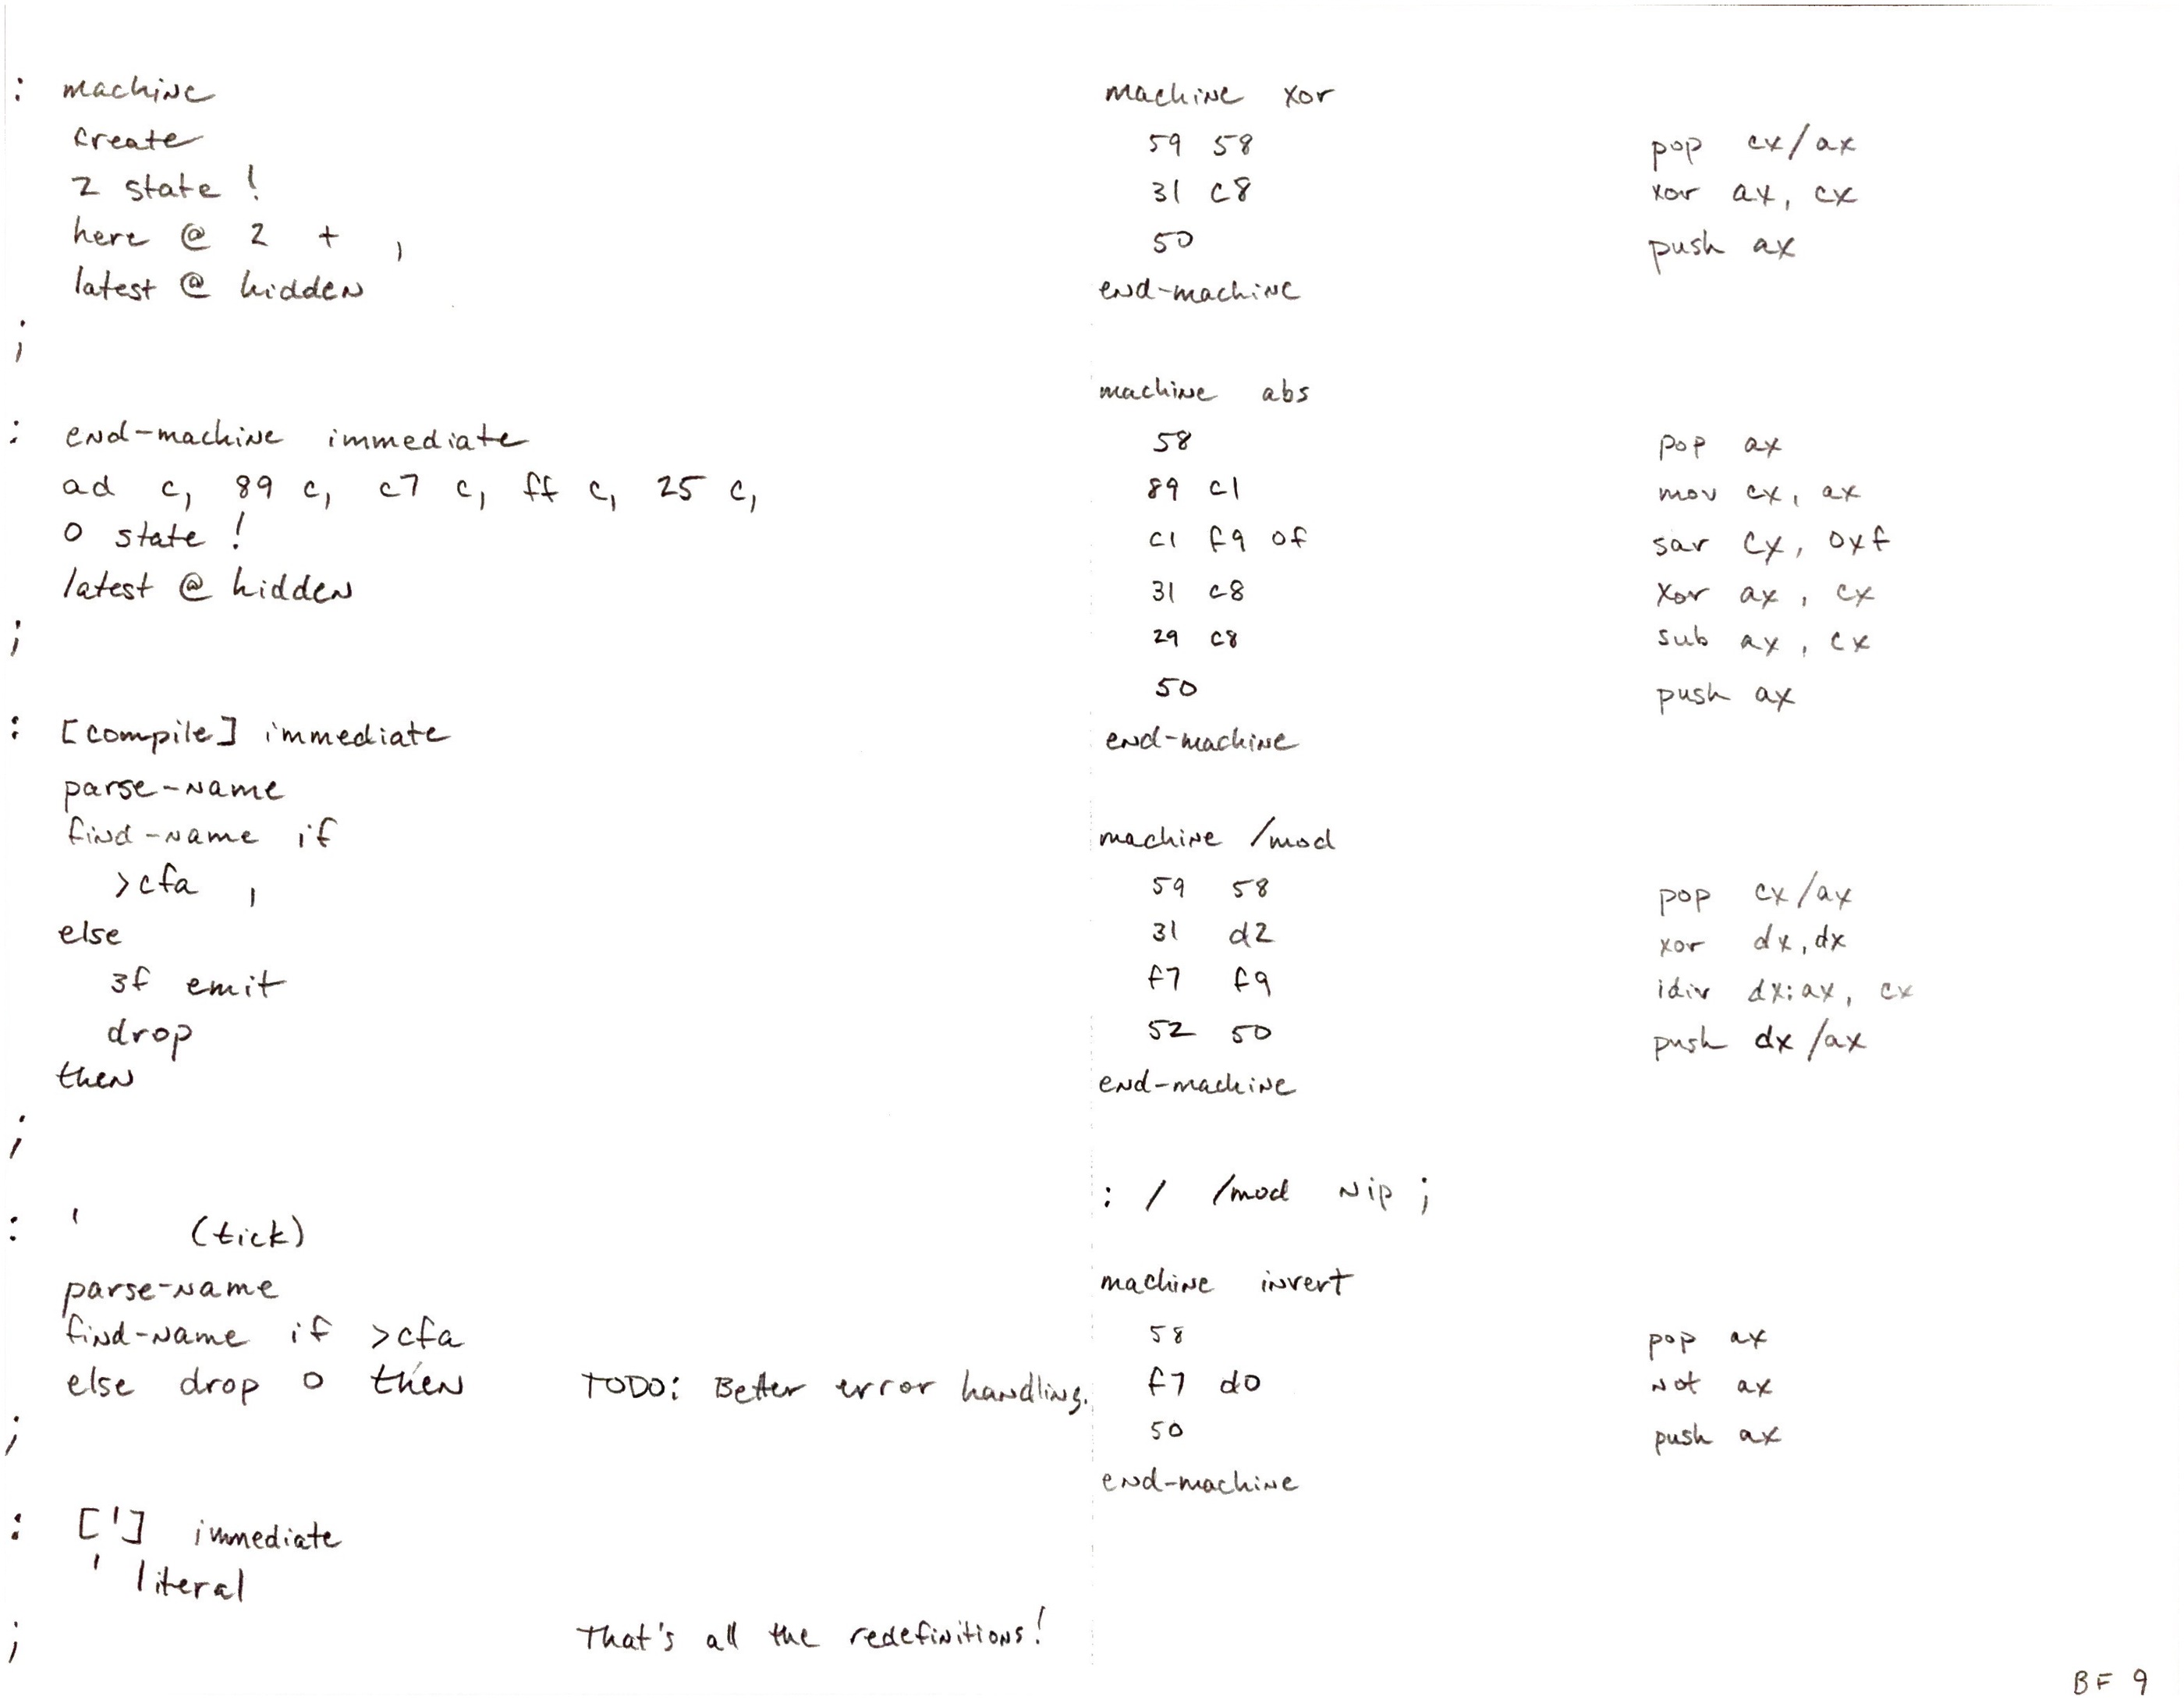 : machine
create
2 state !
here @ 2 + ,
latest @ hidden
;
: end-machine immediate
ad c, 89 c, c7 c, ff c, 25 c,
0 state !
latest @ hidden
;
: [compile] immediate
parse-name
find-name if
>cfa ,
else
3f emit
drop
then
;
: ' (tick)
parse-name
find-name if >cfa
else drop 0 then TODO: Better error handling.
;
: ['] immediate
' literal
;
That's all the redefinitions!
machine xor
59 58 pop cx/ax
31 c8 xor ax, cx
50 push ax
end-machine
machine abs
58 pop ax
89 c1 mov cx, ax
c1 f9 0f sar cx, 0xf
31 c8 xor ax, cx
29 c8 sub ax, cx
50 push ax
end-machine
machine /mod
59 58 pop cx/ax
31 d2 xor dx,dx
f7 f9 idiv dx:ax, cx
52 50 push dx/ax
end-machine
: / /mod nip ;
machine invert
58 pop ax
f7 d0 not ax
50 push ax
end-machine
BF 9